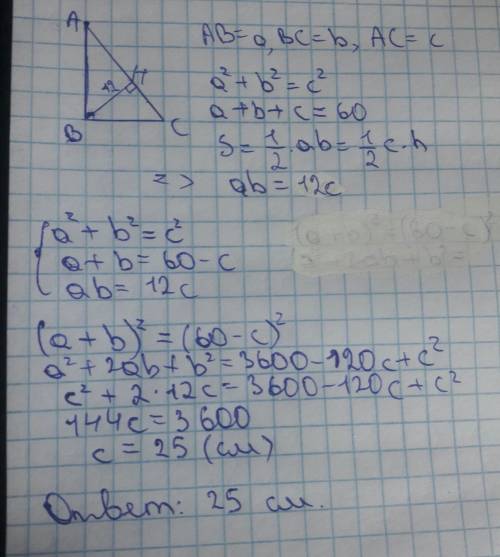 A
AB=a, BC=b, AC=c
a²+b²=c²
H
12
a+b+c=60
B
C
S=1/2·ab=1/2c·h
=> ab=12c
a²+b²=c²
a+b=60-c
ab=12c
(a+b)²=(60-c)²
a²+2ab+b²=3600-120c+c²
c²+2·12c=3600-120c+c²
144c=3600
c=25 (см)
Ответ: 25 см.